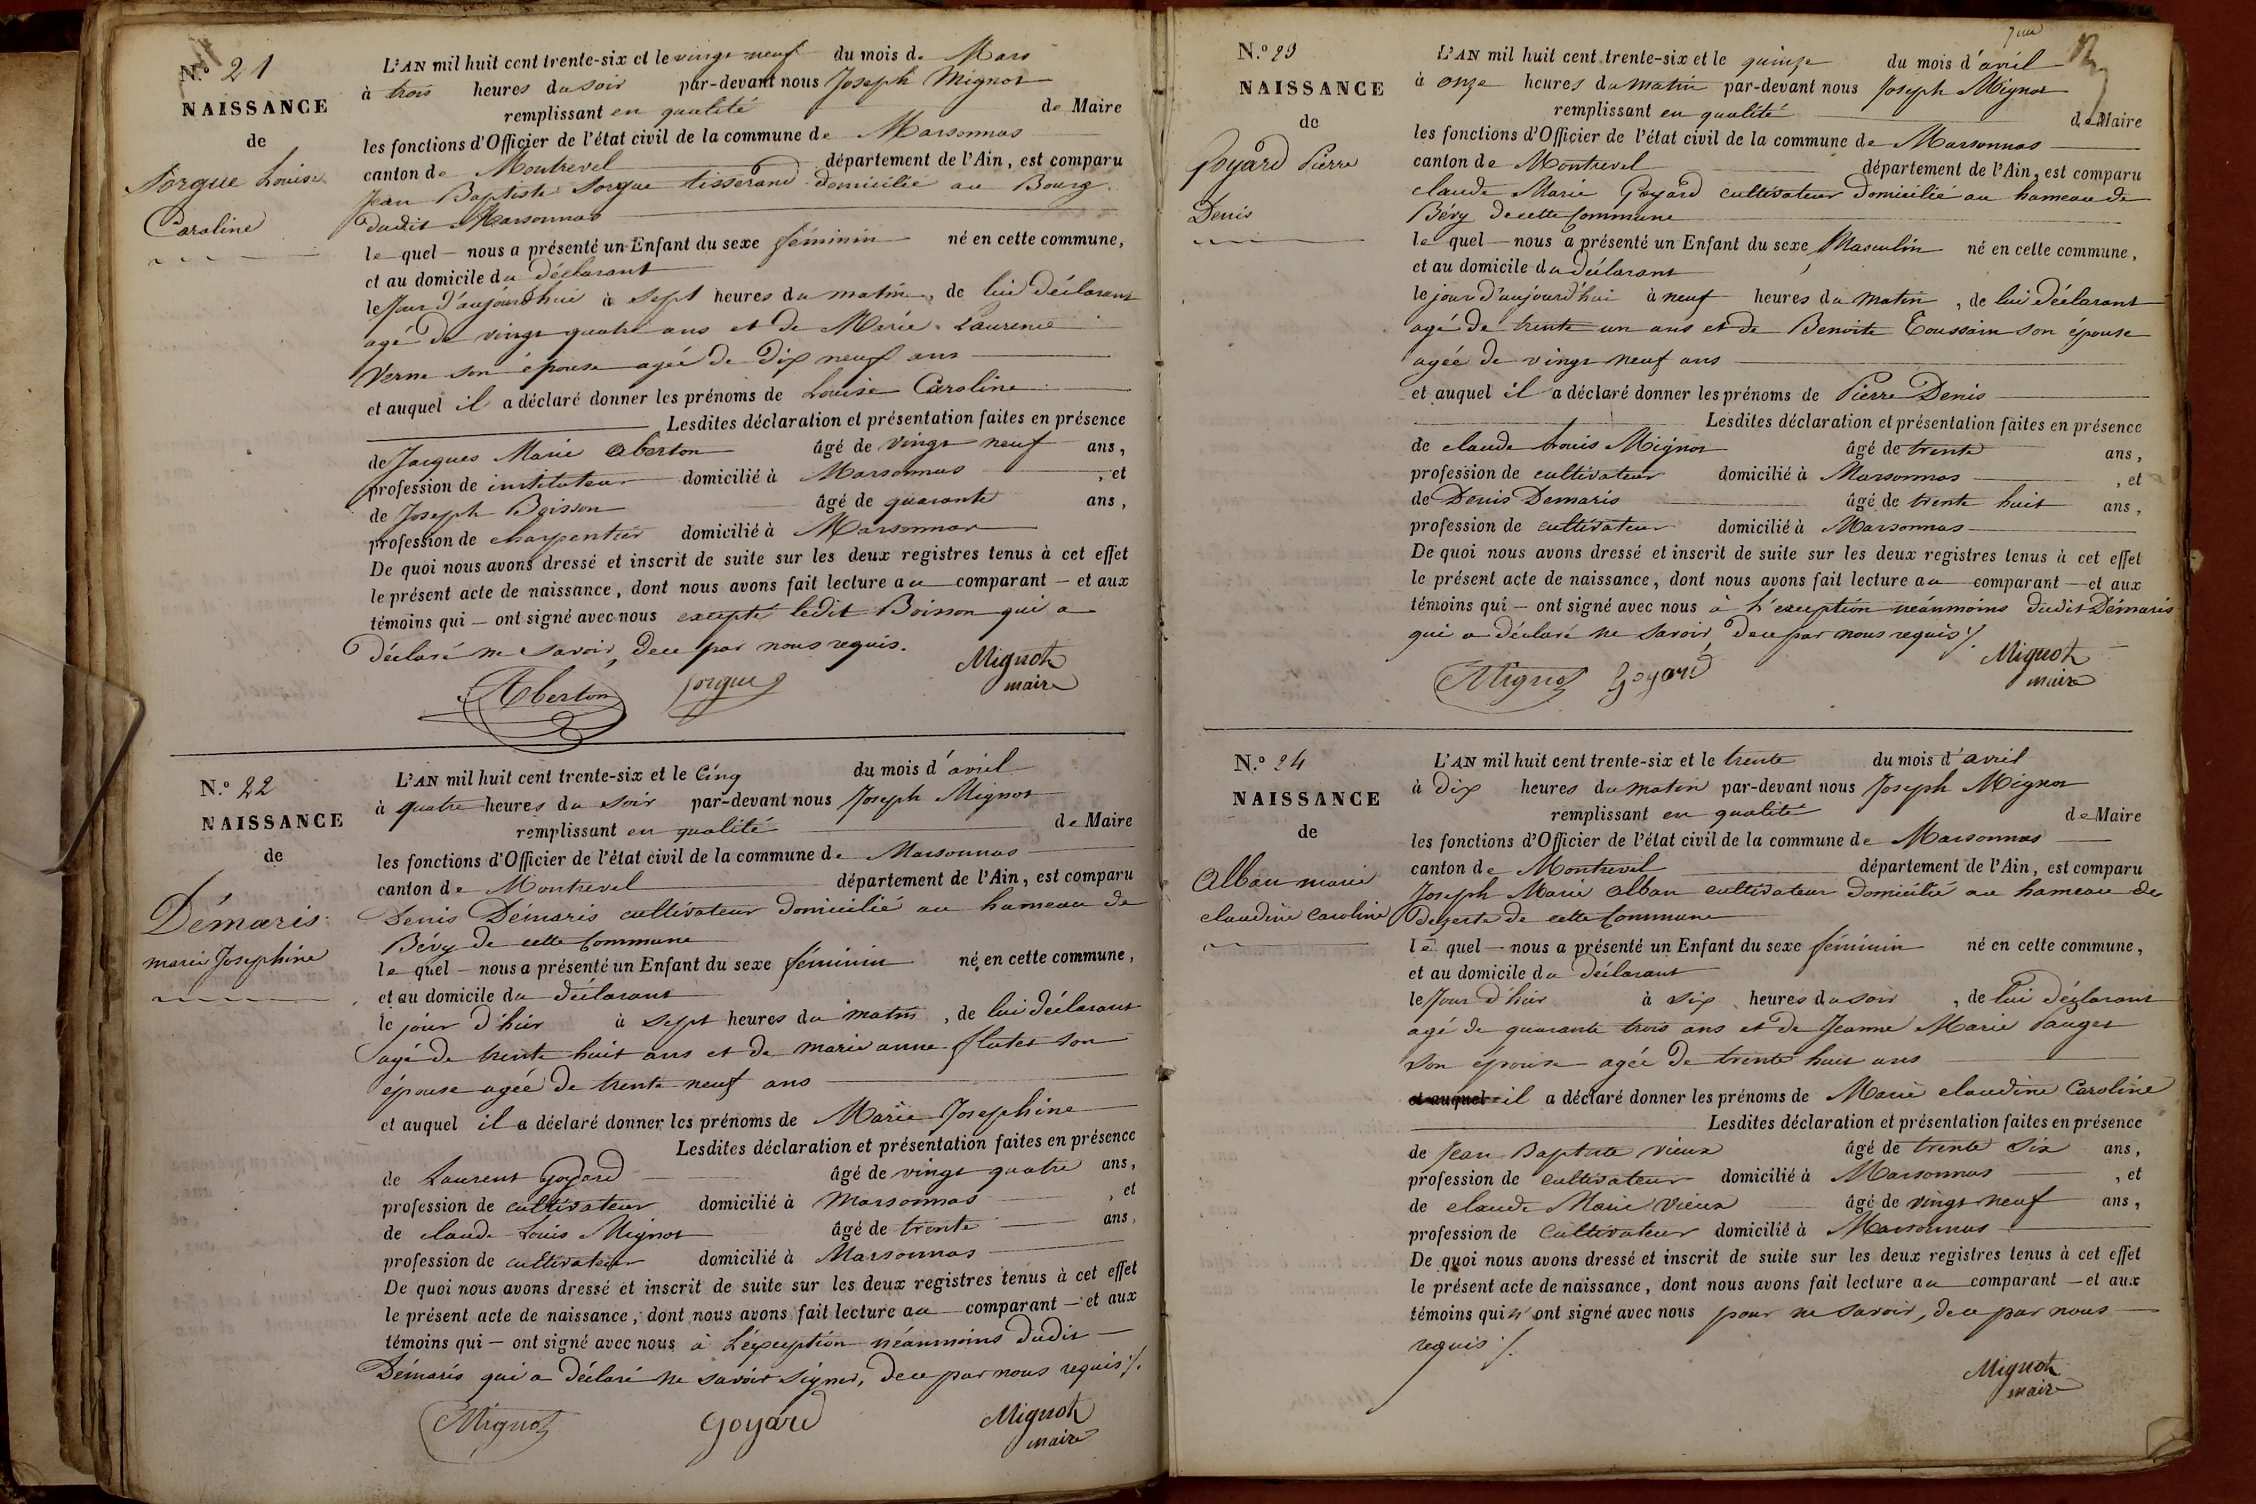 N.º 21
NAISSANCE
de
Sorgue Louise
Caroline
L'AN mil huit cent trente-six et le vingt neuf du mois de Mars
à trois heures du soir par-devant nous Joseph Mignot
remplissant en qualité de Maire
les fonctions d'Officier de l'état civil de la commune de Marsonnas
canton de Montrevel département de l'Ain, est comparu
Jean Baptiste Sorgue tisserand domicilié au Bourg
dudit Marsonnas
le quel — nous a présenté un Enfant du sexe féminin né en cette commune,
et au domicile du déclarant
le jour d'aujourd'hui à sept heures du matin, de lui déclarant
agé de vingt quatre ans et de Marie Laurence
Verne son épouse agée de dix neuf ans
et auquel il a déclaré donner les prénoms de Louise Caroline
Lesdites déclaration et présentation faites en présence
de Jacques Marie Aberton âgé de vingt neuf ans,
profession de instituteur domicilié à Marsonnas, et
de Joseph Boisson âgé de quarante ans,
profession de charpentier domicilié à Marsonnas
De quoi nous avons dressé et inscrit de suite sur les deux registres tenus à cet effet
le présent acte de naissance, dont nous avons fait lecture au comparant — et aux
témoins qui — ont signé avec nous excepté ledit Boisson qui a
déclaré ne savoir, de ce par nous requis.
Aberton Sorgue Mignot
maire
N.º 22
NAISSANCE
de
Démaris
marie Josephine
L'AN mil huit cent trente-six et le cinq du mois d'avril
à quatre heures du soir par-devant nous Joseph Mignot
remplissant en qualité de Maire
les fonctions d'Officier de l'état civil de la commune de Marsonnas
canton de Montrevel département de l'Ain, est comparu
Denis Démaris cultivateur domicilié au hameau de
Bévy de cette Commune
le quel — nous a présenté un Enfant du sexe féminin né en cette commune,
et au domicile du déclarant
le jour d'hier à sept heures du matin, de lui déclarant
agé de trente huit ans et de marie anne flutet son
épouse agée de trente neuf ans
et auquel il a déclaré donner les prénoms de Marie Josephine
Lesdites déclaration et présentation faites en présence
de Laurent Goyard âgé de vingt quatre ans,
profession de cultivateur domicilié à Marsonnas, et
de claude Louis Mignot âgé de trente ans,
profession de cultivateur domicilié à Marsonnas
De quoi nous avons dressé et inscrit de suite sur les deux registres tenus à cet effet
le présent acte de naissance, dont nous avons fait lecture au comparant — et aux
témoins qui — ont signé avec nous à l'éxeption néanmoins dudit
Démaris qui a déclaré ne savoir signer, de ce par nous requis ./.
Mignot Goyard Mignot
maire
N.º 23
NAISSANCE
de
Goyard Pierre
Denis
L'AN mil huit cent trente-six et le quinze du mois d'avril
à onze heures du matin par-devant nous Joseph Mignot
remplissant en qualité de Maire
les fonctions d'Officier de l'état civil de la commune de Marsonnas
canton de Montrevel département de l'Ain, est comparu
claude Marie Goyard cultivateur domicilié au hameau de
Bévy de cette Commune
le quel — nous a présenté un Enfant du sexe Masculin né en cette commune,
et au domicile du déclarant
le jour d'aujourd'hui à neuf heures du matin, de lui déclarant
agé de trente un ans et de Benoite Toussain son épouse
agée de vingt neuf ans
et auquel il a déclaré donner les prénoms de Pierre Denis
Lesdites déclaration et présentation faites en présence
de claude Louis Mignot âgé de trente ans,
profession de cultivateur domicilié à Marsonnas, et
de Denis Demaris âgé de trente huit ans,
profession de cultivateur domicilié à Marsonnas
De quoi nous avons dressé et inscrit de suite sur les deux registres tenus à cet effet
le présent acte de naissance, dont nous avons fait lecture au comparant — et aux
témoins qui — ont signé avec nous à l'exception néanmoins dudit Démaris
qui a déclaré ne savoir, de ce par nous requis ./.
Mignot Goyard Mignot
maire
N.º 24
NAISSANCE
de
Alban marie
claudine caroline
L'AN mil huit cent trente-six et le trente du mois d'avril
à dix heures du matin par-devant nous Joseph Mignot
remplissant en qualité de Maire
les fonctions d'Officier de l'état civil de la commune de Marsonnas
canton de Montrevel département de l'Ain, est comparu
Joseph Marie Alban cultivateur domicilié au hameau de
Dezerte de cette Commune
le quel — nous a présenté un Enfant du sexe féminin né en cette commune,
et au domicile du déclarant
le jour d'hier à six heures du soir, de lui déclarant
agé de quarante trois ans et de Jeanne Marie Pauget
son épouse agée de trente huit ans
et auquel il a déclaré donner les prénoms de Marie claudine Caroline
Lesdites déclaration et présentation faites en présence
de Jean Baptiste vieux âgé de trente six ans,
profession de cultivateur domicilié à Marsonnas, et
de claude Marie Vieux âgé de vingt neuf ans,
profession de cultivateur domicilié à Marsonnas
De quoi nous avons dressé et inscrit de suite sur les deux registres tenus à cet effet
le présent acte de naissance, dont nous avons fait lecture au comparant — et aux
témoins qui n'ont signé avec nous pour ne savoir, de ce par nous
requis ./.
Mignot
maire